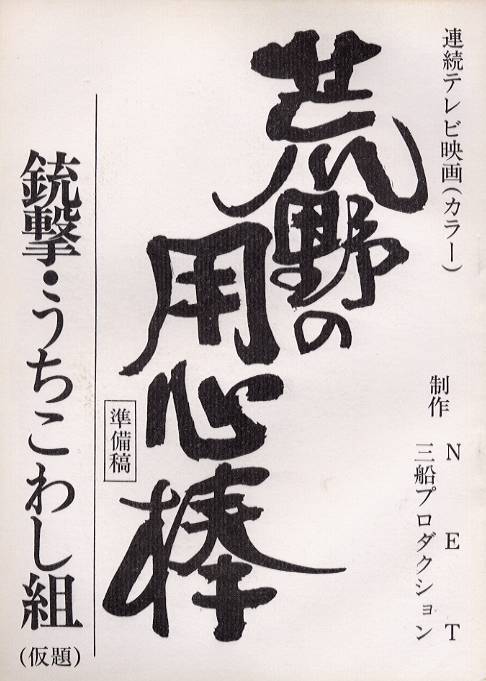 連続テレビ映画(カラー)
制作 NET
三船プロダクション
荒野の
用心棒
準備稿
銃撃・うちこわし組
(仮題)